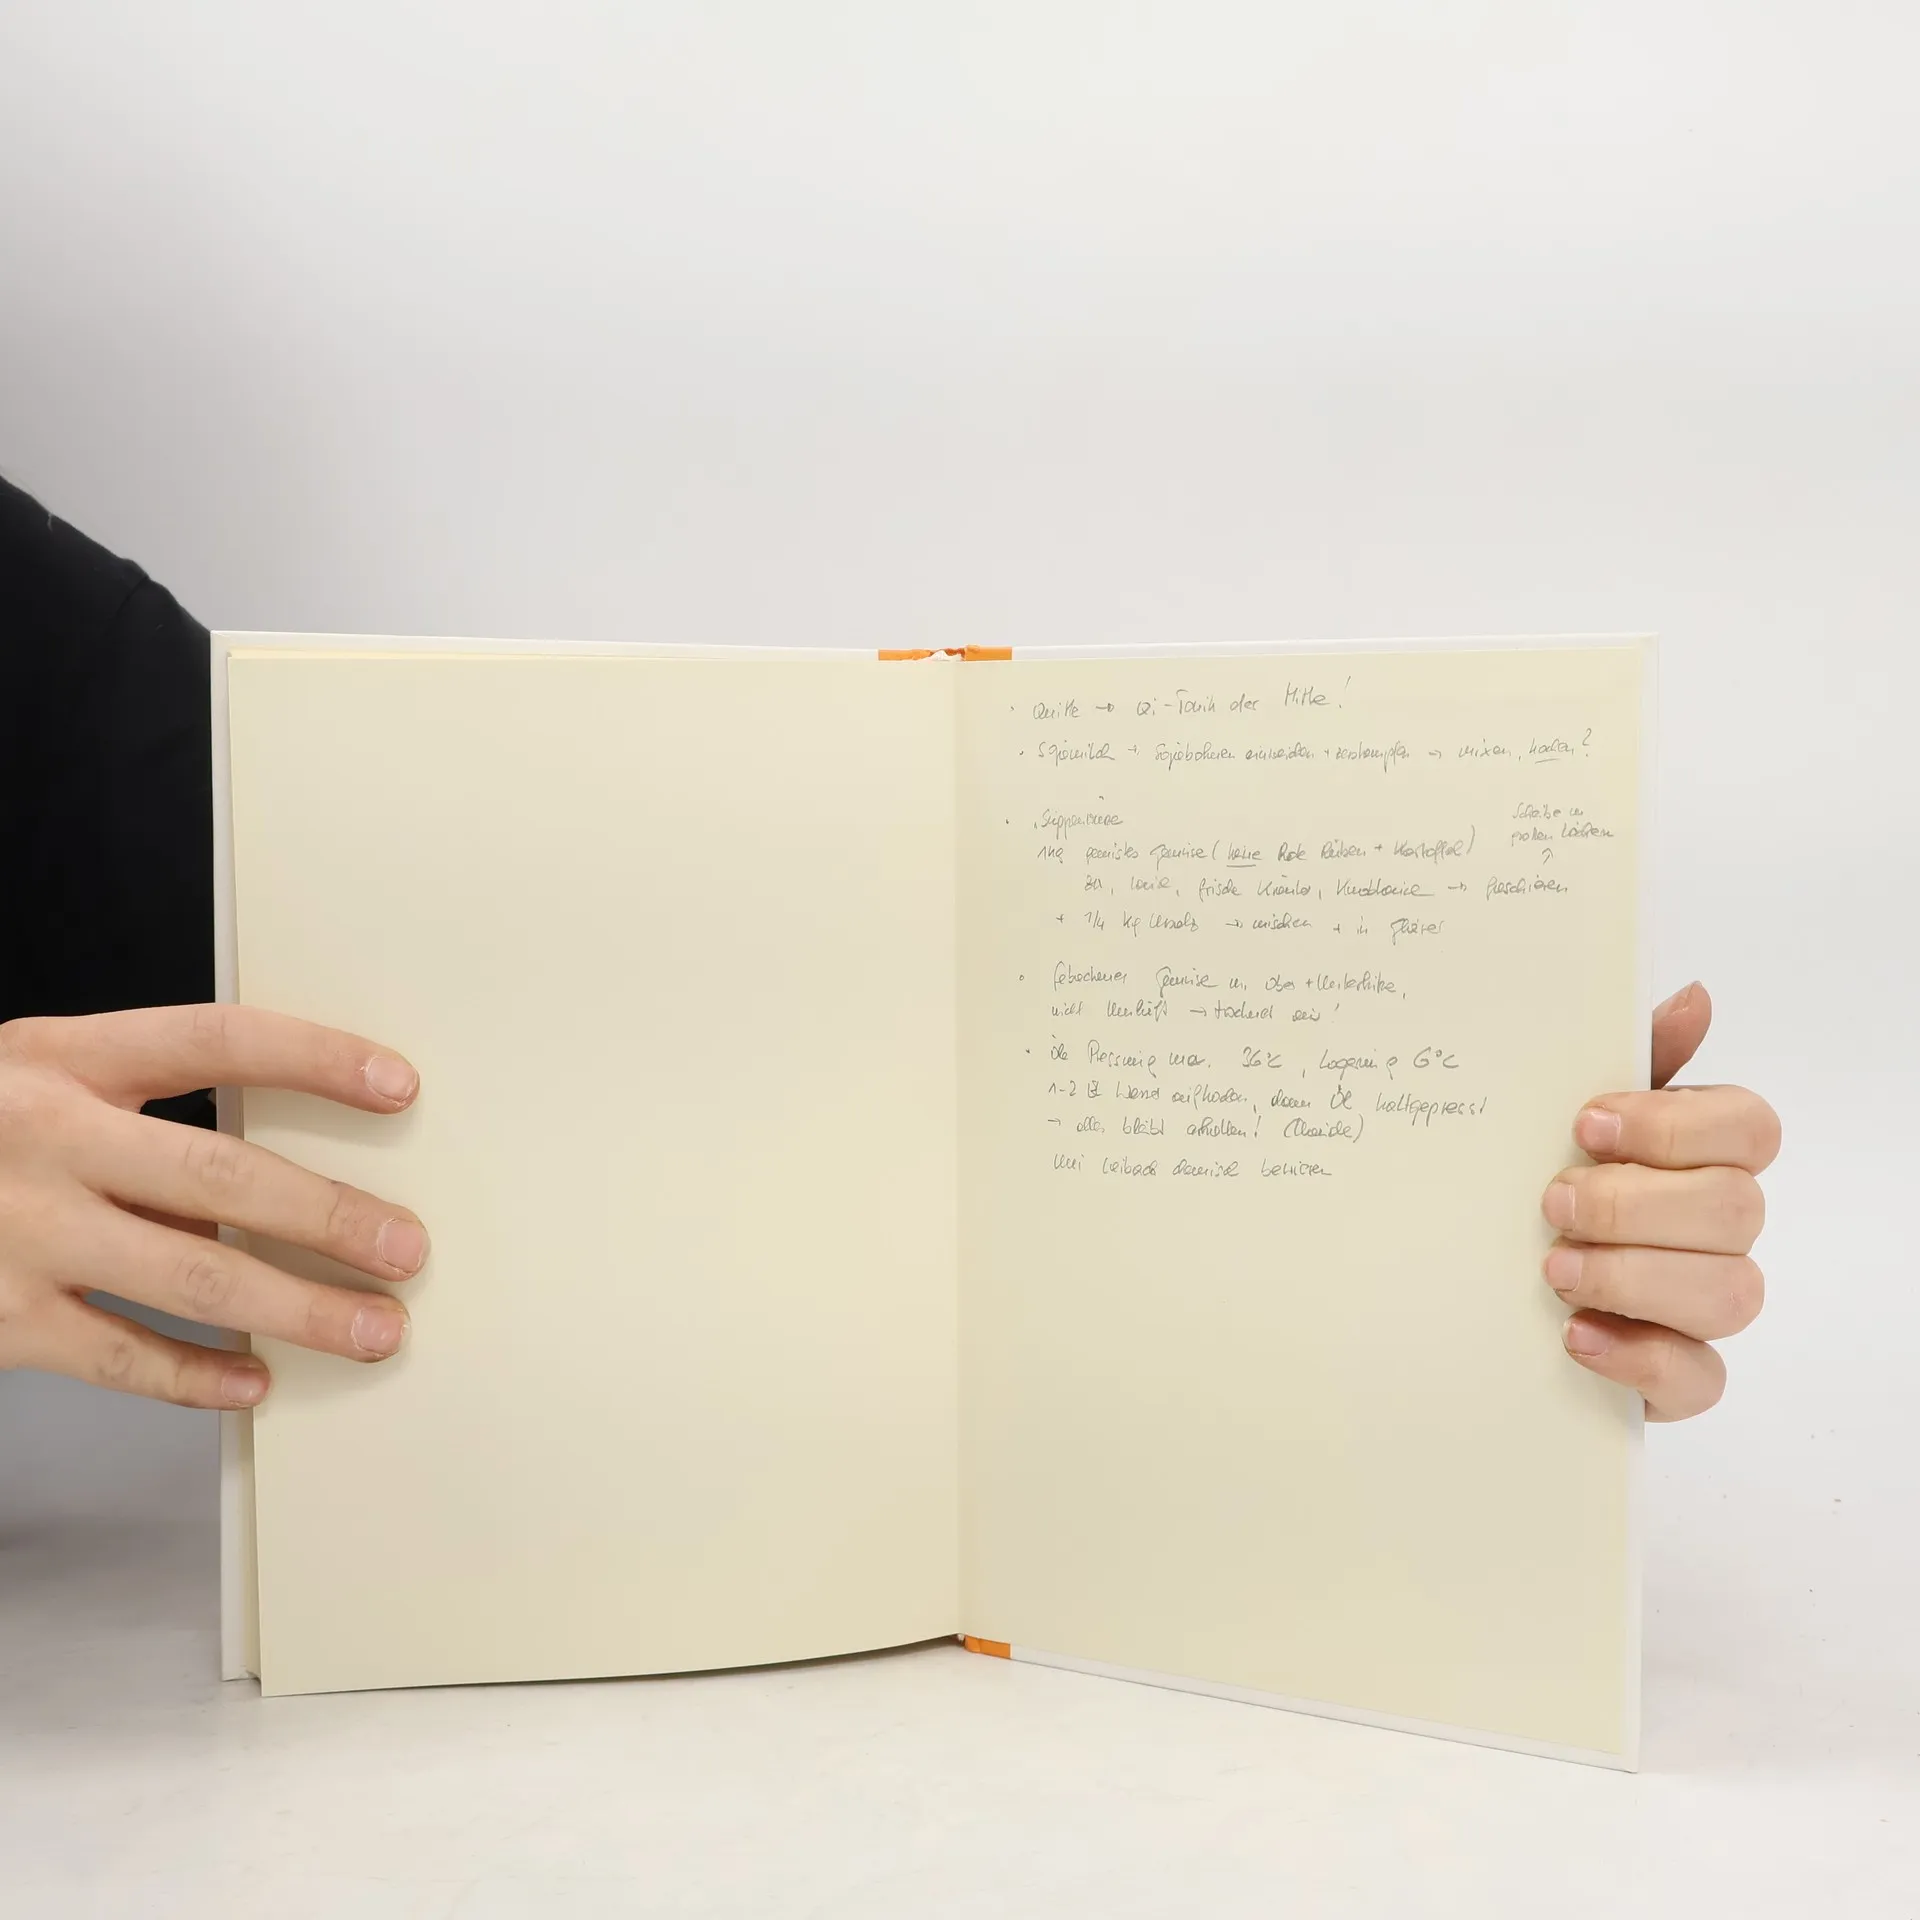 • Quitte → Qi-Tonik der Mitte!
• Sojamilch → Sojabohnen einweichen + zerstampfen → mixen, kochen?
• "Suppenwürze"
Scheibe m
großen Löchern
1kg gemischtes Gemüse (keine Rote Rüben + Kartoffel)
↑
zB, Lauch, frische Kräuter, Knoblauch → faschieren
+ 1/4 kg Ursalz → mischen + in Gläser
• Gebackenes Gemüse m. Ober + Unterhitze,
nicht Umluft → trocknet aus!
• Öle Pressung max. 36°C, Lagerung 6°C
1-2 EL Wasser aufkochen, dann Öl kaltgepresst
→ alles bleibt erhalten!